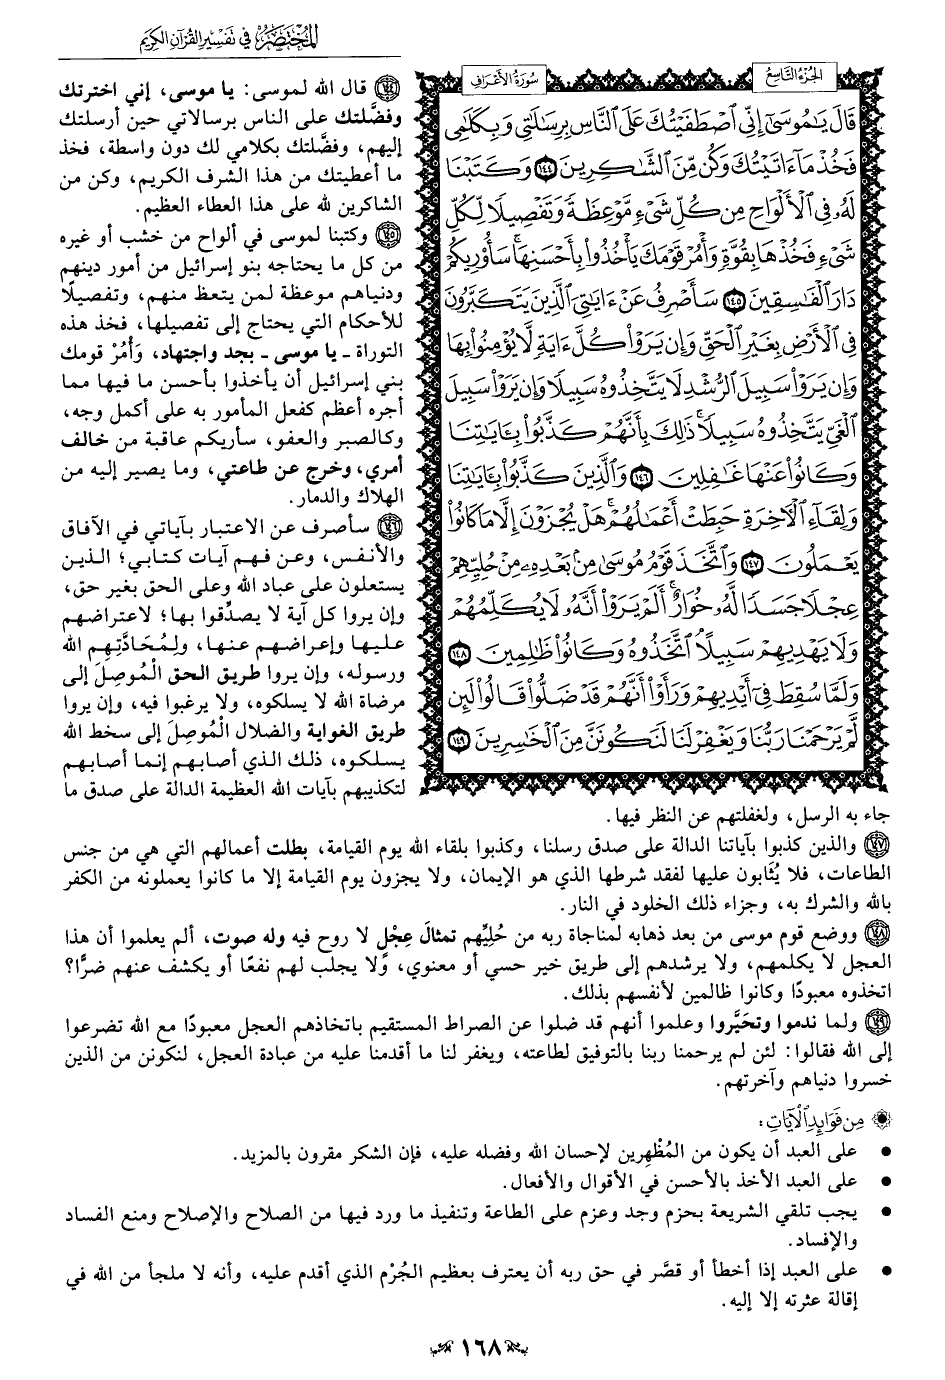 المختصر في تفسير القرآن الكريم
الجزء التاسع
سورة الأعراف
قَالَ يَٰمُوسَىٰٓ إِنِّي ٱصۡطَفَيۡتُكَ عَلَى ٱلنَّاسِ بِرِسَٰلَٰتِي وَبِكَلَٰمِي
فَخُذۡ مَآ ءَاتَيۡتُكَ وَكُن مِّنَ ٱلشَّٰكِرِينَ ١٤٤ وَكَتَبۡنَا
لَهُۥ فِي ٱلۡأَلۡوَاحِ مِن كُلِّ شَيۡءٖ مَّوۡعِظَةٗ وَتَفۡصِيلٗا لِّكُلِّ
شَيۡءٖ فَخُذۡهَا بِقُوَّةٖ وَأۡمُرۡ قَوۡمَكَ يَأۡخُذُواْ بِأَحۡسَنِهَاۚ سَأُوْرِيكُمۡ
دَارَ ٱلۡفَٰسِقِينَ ١٤٥ سَأَصۡرِفُ عَنۡ ءَايَٰتِيَ ٱلَّذِينَ يَتَكَبَّرُونَ
فِي ٱلۡأَرۡضِ بِغَيۡرِ ٱلۡحَقِّ وَإِن يَرَوۡاْ كُلَّ ءَايَةٖ لَّا يُؤۡمِنُواْ بِهَا
وَإِن يَرَوۡاْ سَبِيلَ ٱلرُّشۡدِ لَا يَتَّخِذُوهُ سَبِيلٗا وَإِن يَرَوۡاْ سَبِيلَ
ٱلۡغَيِّ يَتَّخِذُوهُ سَبِيلٗاۚ ذَٰلِكَ بِأَنَّهُمۡ كَذَّبُواْ بِـَٔايَٰتِنَا
وَكَانُواْ عَنۡهَا غَٰفِلِينَ ١٤٦ وَٱلَّذِينَ كَذَّبُواْ بِـَٔايَٰتِنَا
وَلِقَآءِ ٱلۡأٓخِرَةِ حَبِطَتۡ أَعۡمَٰلُهُمۡۚ هَلۡ يُجۡزَوۡنَ إِلَّا مَا كَانُواْ
يَعۡمَلُونَ ١٤٧ وَٱتَّخَذَ قَوۡمُ مُوسَىٰ مِنۢ بَعۡدِهِۦ مِنۡ حُلِيِّهِمۡ
عِجۡلٗا جَسَدٗا لَّهُۥ خُوَارٌۚ أَلَمۡ يَرَوۡاْ أَنَّهُۥ لَا يُكَلِّمُهُمۡ
وَلَا يَهۡدِيهِمۡ سَبِيلًاۘ ٱتَّخَذُوهُ وَكَانُواْ ظَٰلِمِينَ ١٤٨
وَلَمَّا سُقِطَ فِيٓ أَيۡدِيهِمۡ وَرَأَوۡاْ أَنَّهُمۡ قَدۡ ضَلُّواْ قَالُواْ لَئِن
لَّمۡ يَرۡحَمۡنَا رَبُّنَا وَيَغۡفِرۡ لَنَا لَنَكُونَنَّ مِنَ ٱلۡخَٰسِرِينَ ١٤٩
١٤٤ قال الله لموسى: يا موسى، إني اخترتك
وفضَّلتك على الناس برسالاتي حين أرسلتك
إليهم، وفضَّلتك بكلامي لك دون واسطة، فخذ
ما أعطيتك من هذا الشرف الكريم، وكن من
الشاكرين لله على هذا العطاء العظيم.
١٤٥ وكتبنا لموسى في ألواح من خشب أو غيره
من كل ما يحتاجه بنو إسرائيل من أمور دينهم
ودنياهم موعظة لمن يتعظ منهم، وتفصيلًا
للأحكام التي يحتاج إلى تفصيلها، فخذ هذه
التوراة - يا موسى - بجد واجتهاد، وَأْمُرْ قومك
بني إسرائيل أن يأخذوا بأحسن ما فيها مما
أجره أعظم كفعل المأمور به على أكمل وجه،
وكالصبر والعفو، سأريكم عاقبة من خالف
أمري، وخرج عن طاعتي، وما يصير إليه من
الهلاك والدمار.
١٤٦ سأصرف عن الاعتبار بآياتي في الآفاق
والأنفس، وعن فهم آيات كتابي؛ الذين
يستعلون على عباد الله وعلى الحق بغير حق،
وإن يروا كل آية لا يصدِّقوا بها؛ لاعتراضهم
عليها وإعراضهم عنها، ولِمُحَادَّتِهِم الله
ورسوله، وإن يروا طريق الحق الْمُوصِلَ إلى
مرضاة الله لا يسلكوه، ولا يرغبوا فيه، وإن يروا
طريق الغواية والضلال الْمُوصِلَ إلى سخط الله
يسلكوه، ذلك الذي أصابهم إنما أصابهم
لتكذيبهم بآيات الله العظيمة الدالة على صدق ما
جاء به الرسل، ولغفلتهم عن النظر فيها.
١٤٧ والذين كذبوا بآياتنا الدالة على صدق رسلنا، وكذبوا بلقاء الله يوم القيامة، بطلت أعمالهم التي هي من جنس
الطاعات، فلا يُثَابون عليها لفقد شرطها الذي هو الإيمان، ولا يجزون يوم القيامة إلا ما كانوا يعملونه من الكفر
بالله والشرك به، وجزاء ذلك الخلود في النار.
١٤٨ ووضع قوم موسى من بعد ذهابه لمناجاة ربه من حُلِيِّهم تمثالَ عِجْلٍ لا روح فيه وله صوت، ألم يعلموا أن هذا
العجل لا يكلمهم، ولا يرشدهم إلى طريق خير حسي أو معنوي، ولا يجلب لهم نفعًا أو يكشف عنهم ضرًّا؟
اتخذوه معبودًا وكانوا ظالمين لأنفسهم بذلك.
١٤٩ ولما ندموا وتحَيَّروا وعلموا أنهم قد ضلوا عن الصراط المستقيم باتخاذهم العجل معبودًا مع الله تضرعوا
إلى الله فقالوا: لئن لم يرحمنا ربنا بالتوفيق لطاعته، ويغفر لنا ما أقدمنا عليه من عبادة العجل، لنكونن من الذين
خسروا دنياهم وآخرتهم.
من فوائد الآيات:
• على العبد أن يكون من المُظْهِرين لإحسان الله وفضله عليه، فإن الشكر مقرون بالمزيد.
• على العبد الأخذ بالأحسن في الأقوال والأفعال.
• يجب تلقي الشريعة بحزم وجد وعزم على الطاعة وتنفيذ ما ورد فيها من الصلاح والإصلاح ومنع الفساد
والإفساد.
• على العبد إذا أخطأ أو قصَّر في حق ربه أن يعترف بعظيم الجُرْم الذي أقدم عليه، وأنه لا ملجأ من الله في
إقالة عثرته إلا إليه.
١٦٨